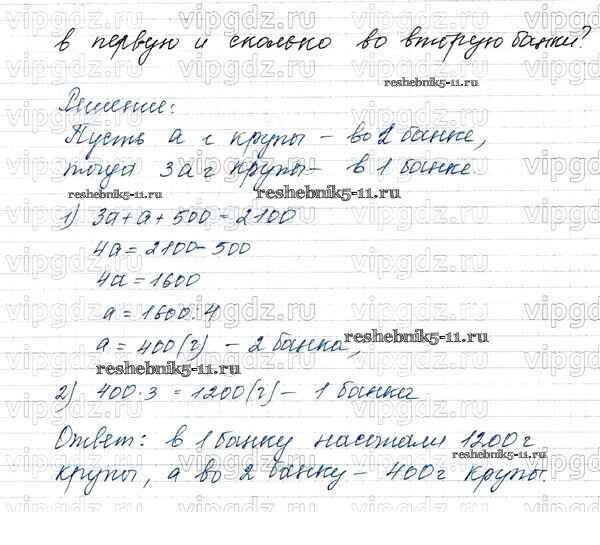 в первую и сколько во вторую банки?
Решение:
Пусть а г крупы – во 2 банке,
тогда 3а г крупы – в 1 банке.
1) 3а + а + 500 = 2100
4а = 2100 – 500
4а = 1600
а = 1600 : 4
а = 400 (г) – 2 банка,
2) 400 · 3 = 1200 (г) – 1 банка
Ответ: в 1 банку насыпали 1200 г
крупы, а во 2 банку – 400 г крупы.
reshebnik5-11.ru
reshebnik5-11.ru
reshebnik5-11.ru
reshebnik5-11.ru
reshebnik5-11.ru
reshebnik5-11.ru
vipgdz.ru